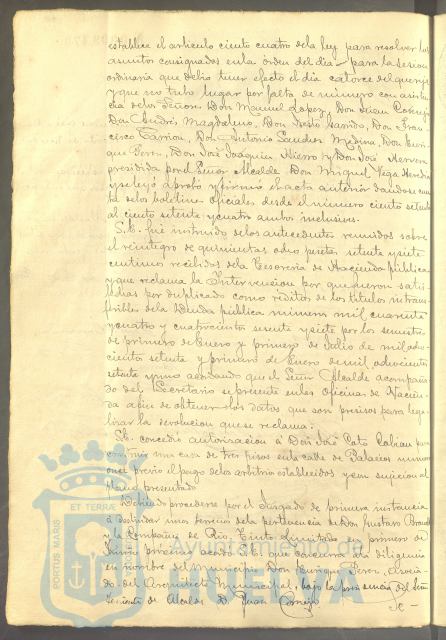 establece el artículo ciento cuatro de la ley para resolver los
asuntos consignados en la órden del dia para la sesion
ordinaria que debio tener efecto el dia catorce del que rije
y que no tubo lugar por falta de número con asisten-
cia de los Señores Don Manuel Lopez, Don Juan Cornejo
Don Andrés Magdaleno, Don Justo Garrido, Don Fran-
cisco Carrion, Don Antonio Sanchez Medina, Don Enri-
que Peron, Don José Joaquin Hierro y Don José Hervera
presidida por el Señor Alcalde Don Miguel Vega Heredia
y se leyó aprobó y firmó el acta anterior dandose cuen-
ta de los boletines oficiales desde el número ciento setenta
al ciento setenta y cuatro ambos inclusives.
S.E. fué instruido de los antecedentes reunidos sobre
el reintegro de quinientas ocho pesetas setenta y siete
centimos recibidos de la Tesorería de Hacienda pública
y que reclama la Intervencion por que fueron satis-
fechas por duplicado como réditos de los titulos intrans-
feribles de la Deuda pública número mil cuarenta
y cuatro y cuatrocientos sesenta y siete por los semestres
de primero de Enero y primero de Julio de mil ocho-
cientos setenta y primero de Enero de mil ochocientos
setenta y uno acordando que el Señor Alcalde acompaña-
do del Secretario se presente en las Oficinas de Hacien-
da afin de obtener los datos que son precisos para lega-
lizar la devolucion que se reclama:
S.E. concedió autorizacion á Don José Cato Cabian para
construir una casa de tres pisos en la calle de Palacios número
once previo el pago de los arbitrios establecidos y con sujecion al
plano presentado
Debiendo procederse por el Juzgado de primera instancia
á deslindar unos terrenos de la pertenencia de Don Gustavo
y la Compañia de Rio Tinto Limitada en primero de
Junio procsimo acordó S.E. que concurra á la diligencia
en nombre del Municipio Don Enrique Peron, asocia-
do del Arquitecto Municipal, bajo la presidencia del Señor
Teniente de Alcalde D. Juan Cornejo
Se
PORTUS MARIS
ET TERRE
Ayuntamiento de
HUELVA